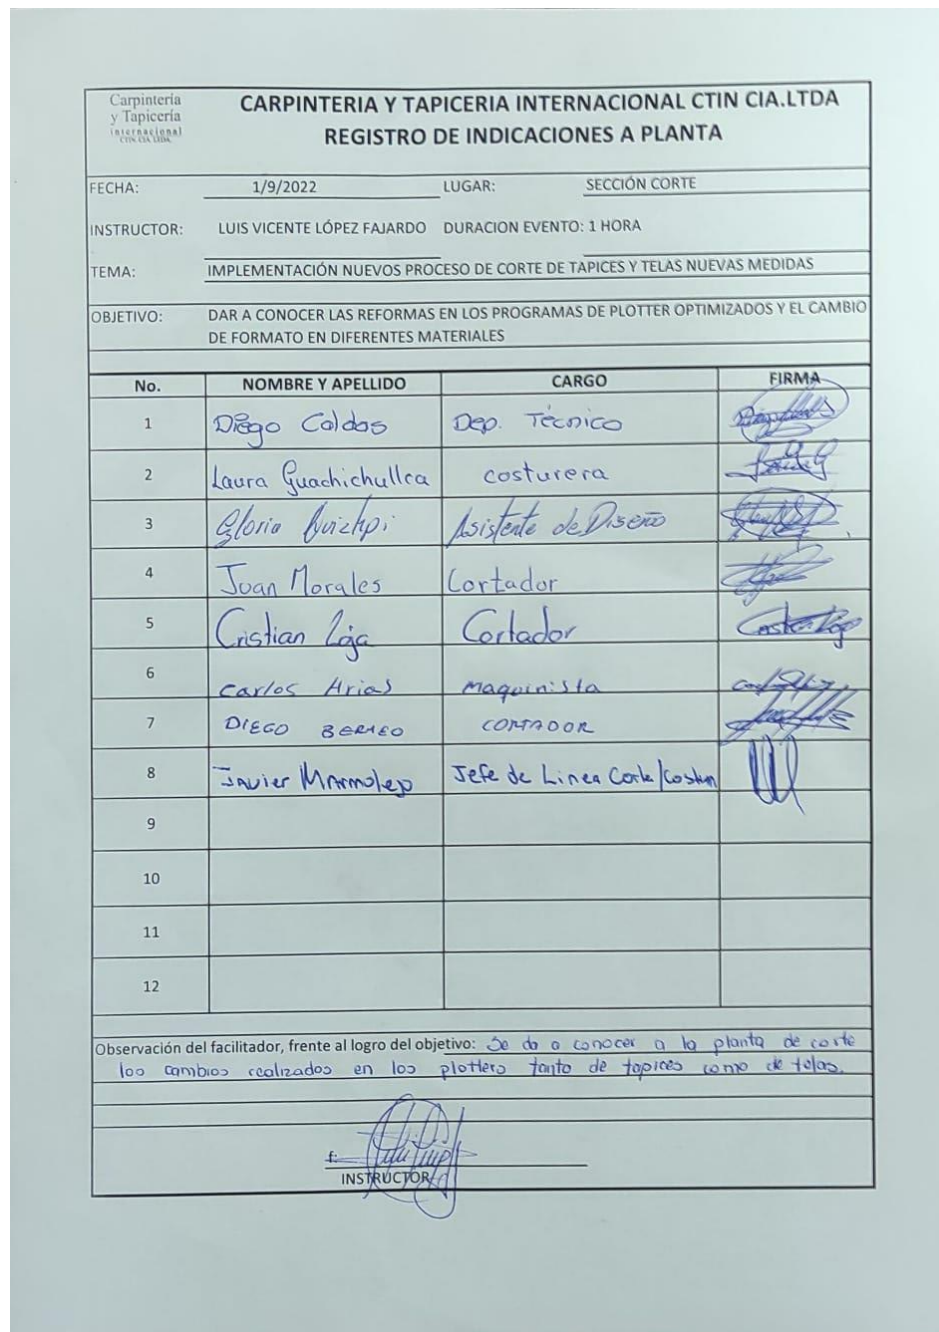 Carpintería
y Tapicería
internacional
CTIN CIA. LTDA.
CARPINTERIA Y TAPICERIA INTERNACIONAL CTIN CIA.LTDA
REGISTRO DE INDICACIONES A PLANTA
FECHA: 1/9/2022 LUGAR: SECCIÓN CORTE
INSTRUCTOR: LUIS VICENTE LÓPEZ FAJARDO DURACION EVENTO: 1 HORA
TEMA: IMPLEMENTACIÓN NUEVOS PROCESO DE CORTE DE TAPICES Y TELAS NUEVAS MEDIDAS
OBJETIVO: DAR A CONOCER LAS REFORMAS EN LOS PROGRAMAS DE PLOTTER OPTIMIZADOS Y EL CAMBIO
DE FORMATO EN DIFERENTES MATERIALES
No. NOMBRE Y APELLIDO CARGO FIRMA
1 Diego Caldas Dep. Técnico
2 Laura Guachichullca costurera
3 Gloria Quizhpi Asistente de Diseño
4 Juan Morales Cortador
5 Cristian Loja Cortador
6 Carlos Arias Maquinista
7 DIEGO BERMEO CORTADOR
8 Javier Marmolejo Jefe de Linea Corte/
9
10
11
12
Observación del facilitador, frente al logro del objetivo: Se da a conocer a la planta de corte
los cambios realizados en los plotters tanto de tapices como de telas.
f:
INSTRUCTOR